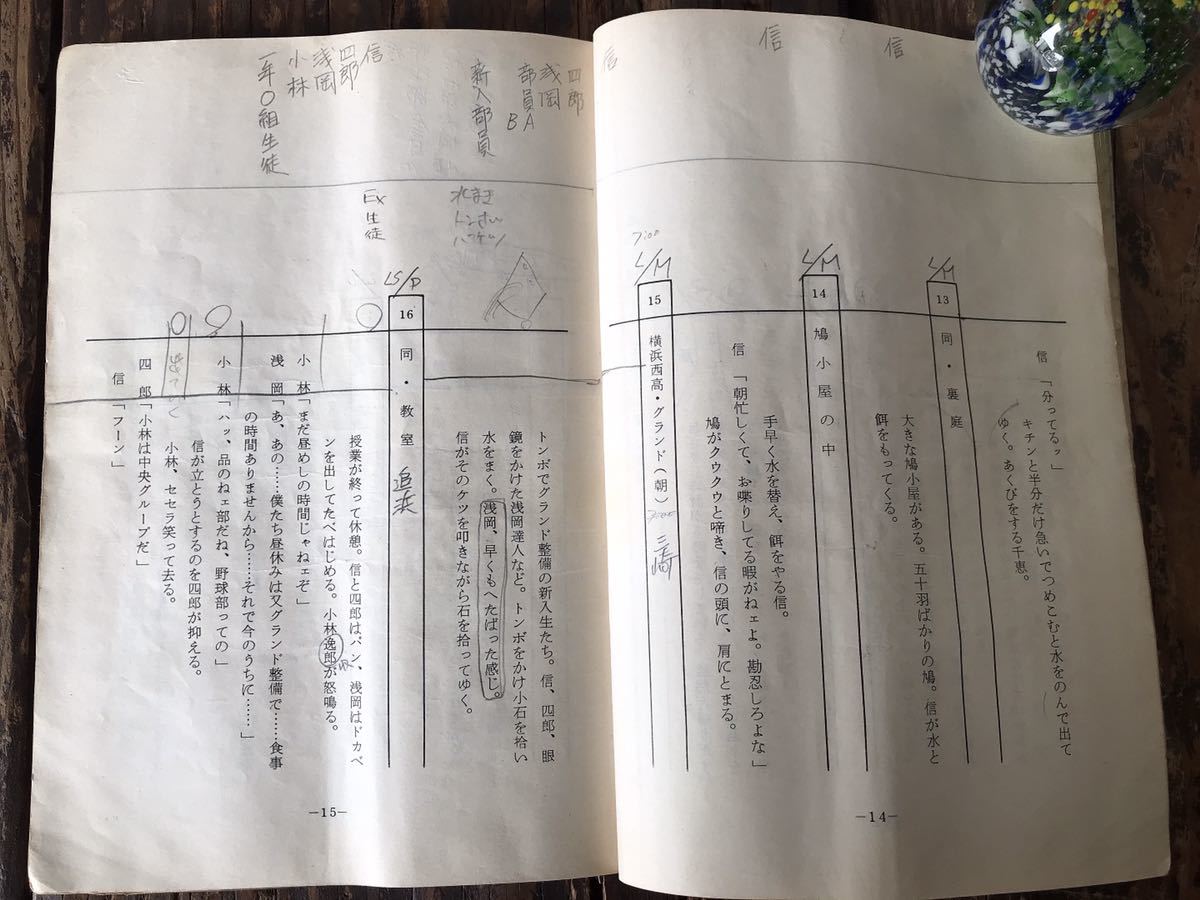 信
信
信
四郎
浅岡
部員A
B
新入部員
信
四郎
浅岡
小林
一年〇組生徒
信「分ってるッ」
キチンと半分だけ急いでつめこむと水をのんで出て
ゆく。あくびをする千恵。
L/M
13 同・裏庭
大きな鳩小屋がある。五十羽ばかりの鳩。信が水と
餌をもってくる。
L/M
14 鳩小屋の中
手早く水を替え、餌をやる信。
信「朝忙しくて、お喋りしてる暇がねェよ。勘忍しろよな」
鳩がクウクウと啼き、信の頭に、肩にとまる。
7:00
L/M
15 横浜西高・グランド(朝) 三崎
―14―
水まき
トンボ
バケツ
トンボでグランド整備の新入生たち。信、四郎、眼
鏡をかけた浅岡達人など。トンボをかけ小石を拾い
水をまく。浅岡、早くもへたばった感じ。
信がそのケツを叩きながら石を拾ってゆく。
LS/D
16 同・教室 追浜
EX
生徒
授業が終って休憩。信と四郎はパン、浅岡はドカベ
ンを出してたべはじめる。小林逸郎が怒鳴る。
小林「まだ昼めしの時間じゃねェぞ」
浅岡「あ、あの……僕たち昼休みは又グランド整備で……食事
の時間ありませんから……それで今のうちに……」
小林「ハッ、品のねェ部だね、野球部っての」
信が立とうとするのを四郎が抑える。
小林、セセラ笑って去る。
出ていく
四郎「小林は中央グループだ」
信「フーン」
―15―